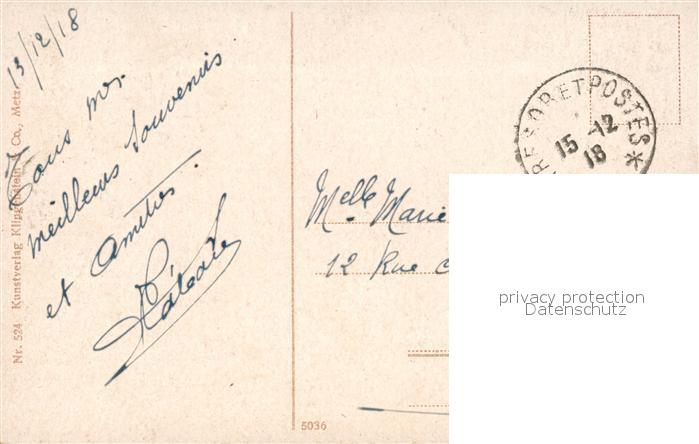 13/12/18
Tous mes
meilleurs souvenirs
et amitiés.
Nr. 524 Kunstverlag Klingenstein & Co., Metz
TRESOR ET POSTES *
15-12
18
Melle Marie
12 Rue
5036
privacy protection
Datenschutz